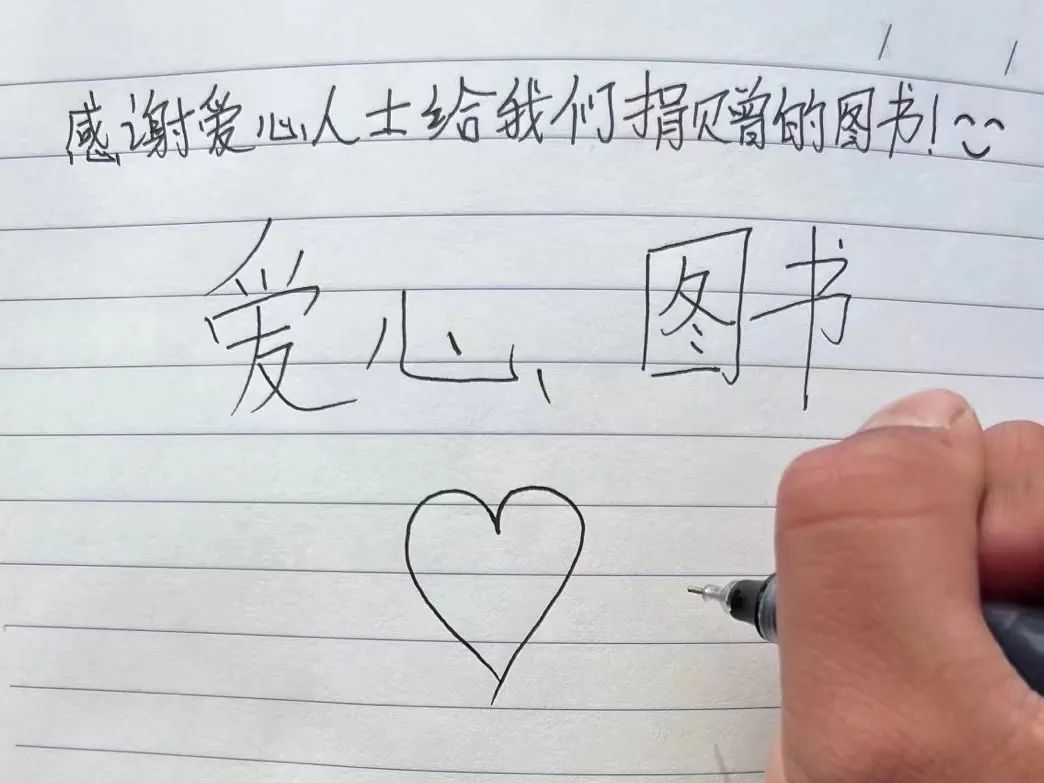 感谢爱心人士给我们捐赠的图书!
爱心图书